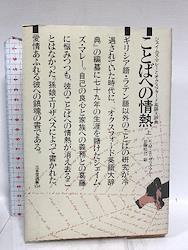 ジェイムズ・マレーとオクスフォード英語大辞典
ことばへの情熱 上
ギリシア語・ラテン語以外のことばの研究が冷
遇されていた時代に、『オクスフォード英語大辞
典』の編纂に七十九年の生涯を賭けたジェイム
ズ・マレー。自己の良心と家族への義務との葛藤
に悩みつつも、彼の〈ことばへの情熱〉が消え去るこ
とはなかった。孫娘エリザベスによって書かれた、
愛情あふれる彼への鎮魂の書である。